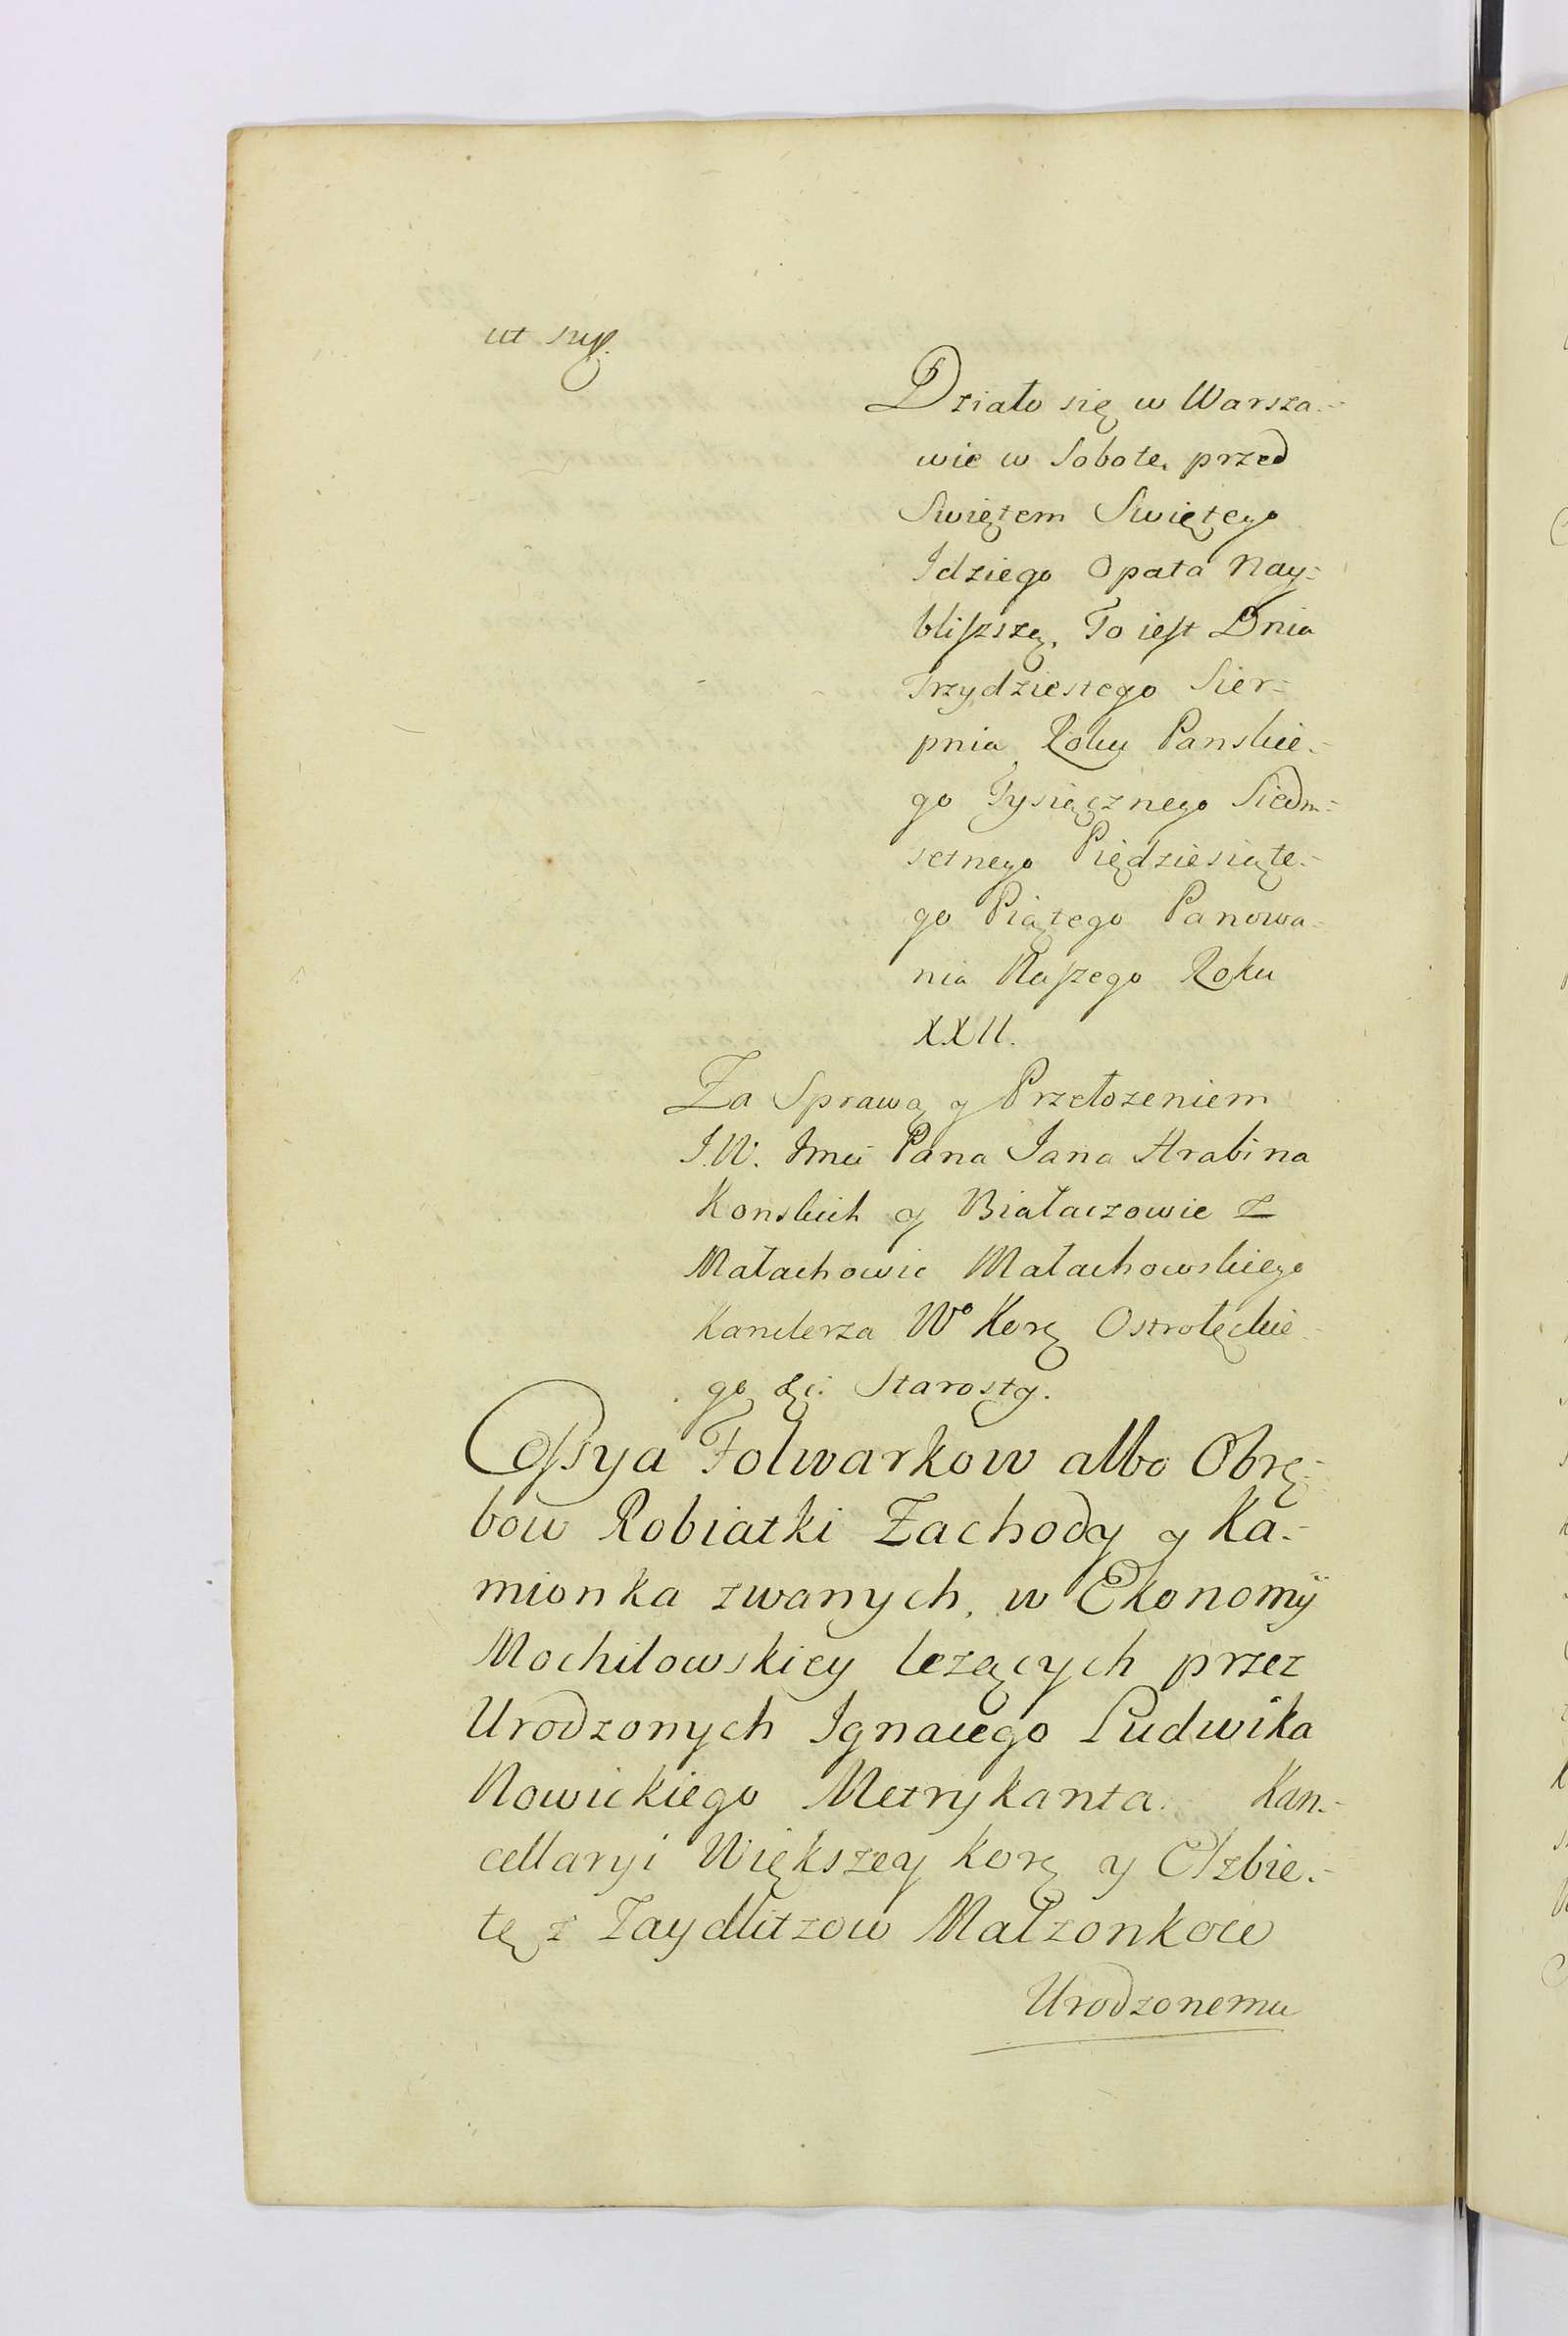 ut sup.
Działo się w Warsza=
wie w Sobotę przed
Swiętem Swiętego
Idziego Opata Nay=
bliſzszą, To ieſt Dnia
Trzydziestego Sier=
pnia Roku Panskie=
go Tysiącznego Siedm=
setnego Piędziesiąte=
go Piątego Panowa=
nia Naſzego Roku
XXII.
Za Sprawą y Przełozeniem
J.W. Jmci Pana Jana Hrabi na
Konskich y Białaczowie z
Małachowic Małachowskiego
Kanclerza Wo Korg Ostrołęckie=
go &c: Starosty.
Ceſsya Folwarkow albo Obrę=
bow Robiatki Zachody y Ka=
mionka zwanych, w Ekonomÿ
Mochilowskiey lezących przez
Urodzonych Ignacego Ludwika
Nowickiego Metrykanta Kan=
cellaryi Większey Korg y Elzbie=
tę z Zaydlitzow Małzonkow
Urodzonemu